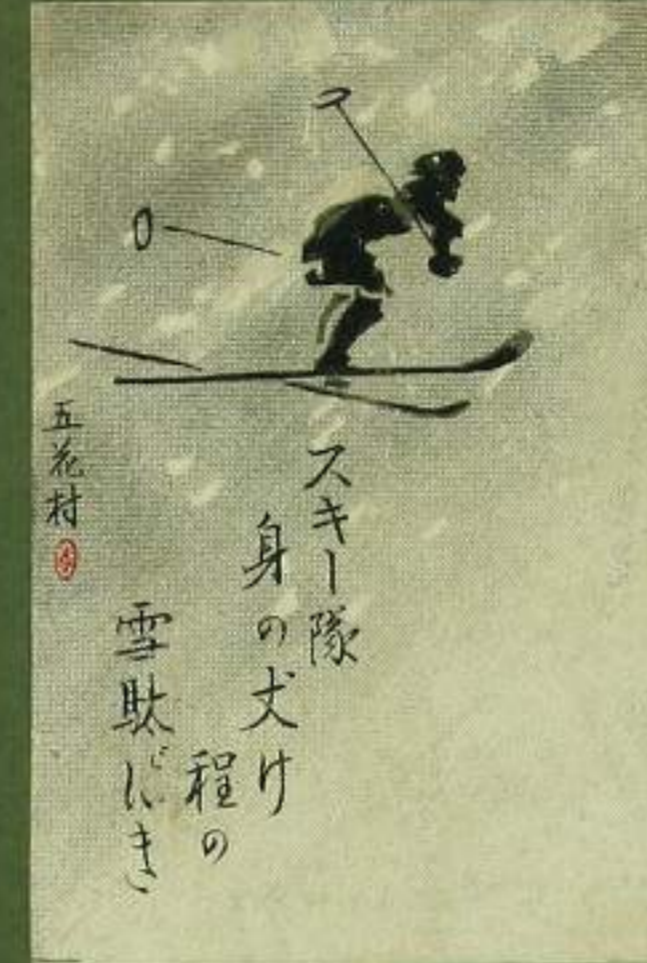 スキー隊
身の丈け
程の
雪駄ばき
五花村